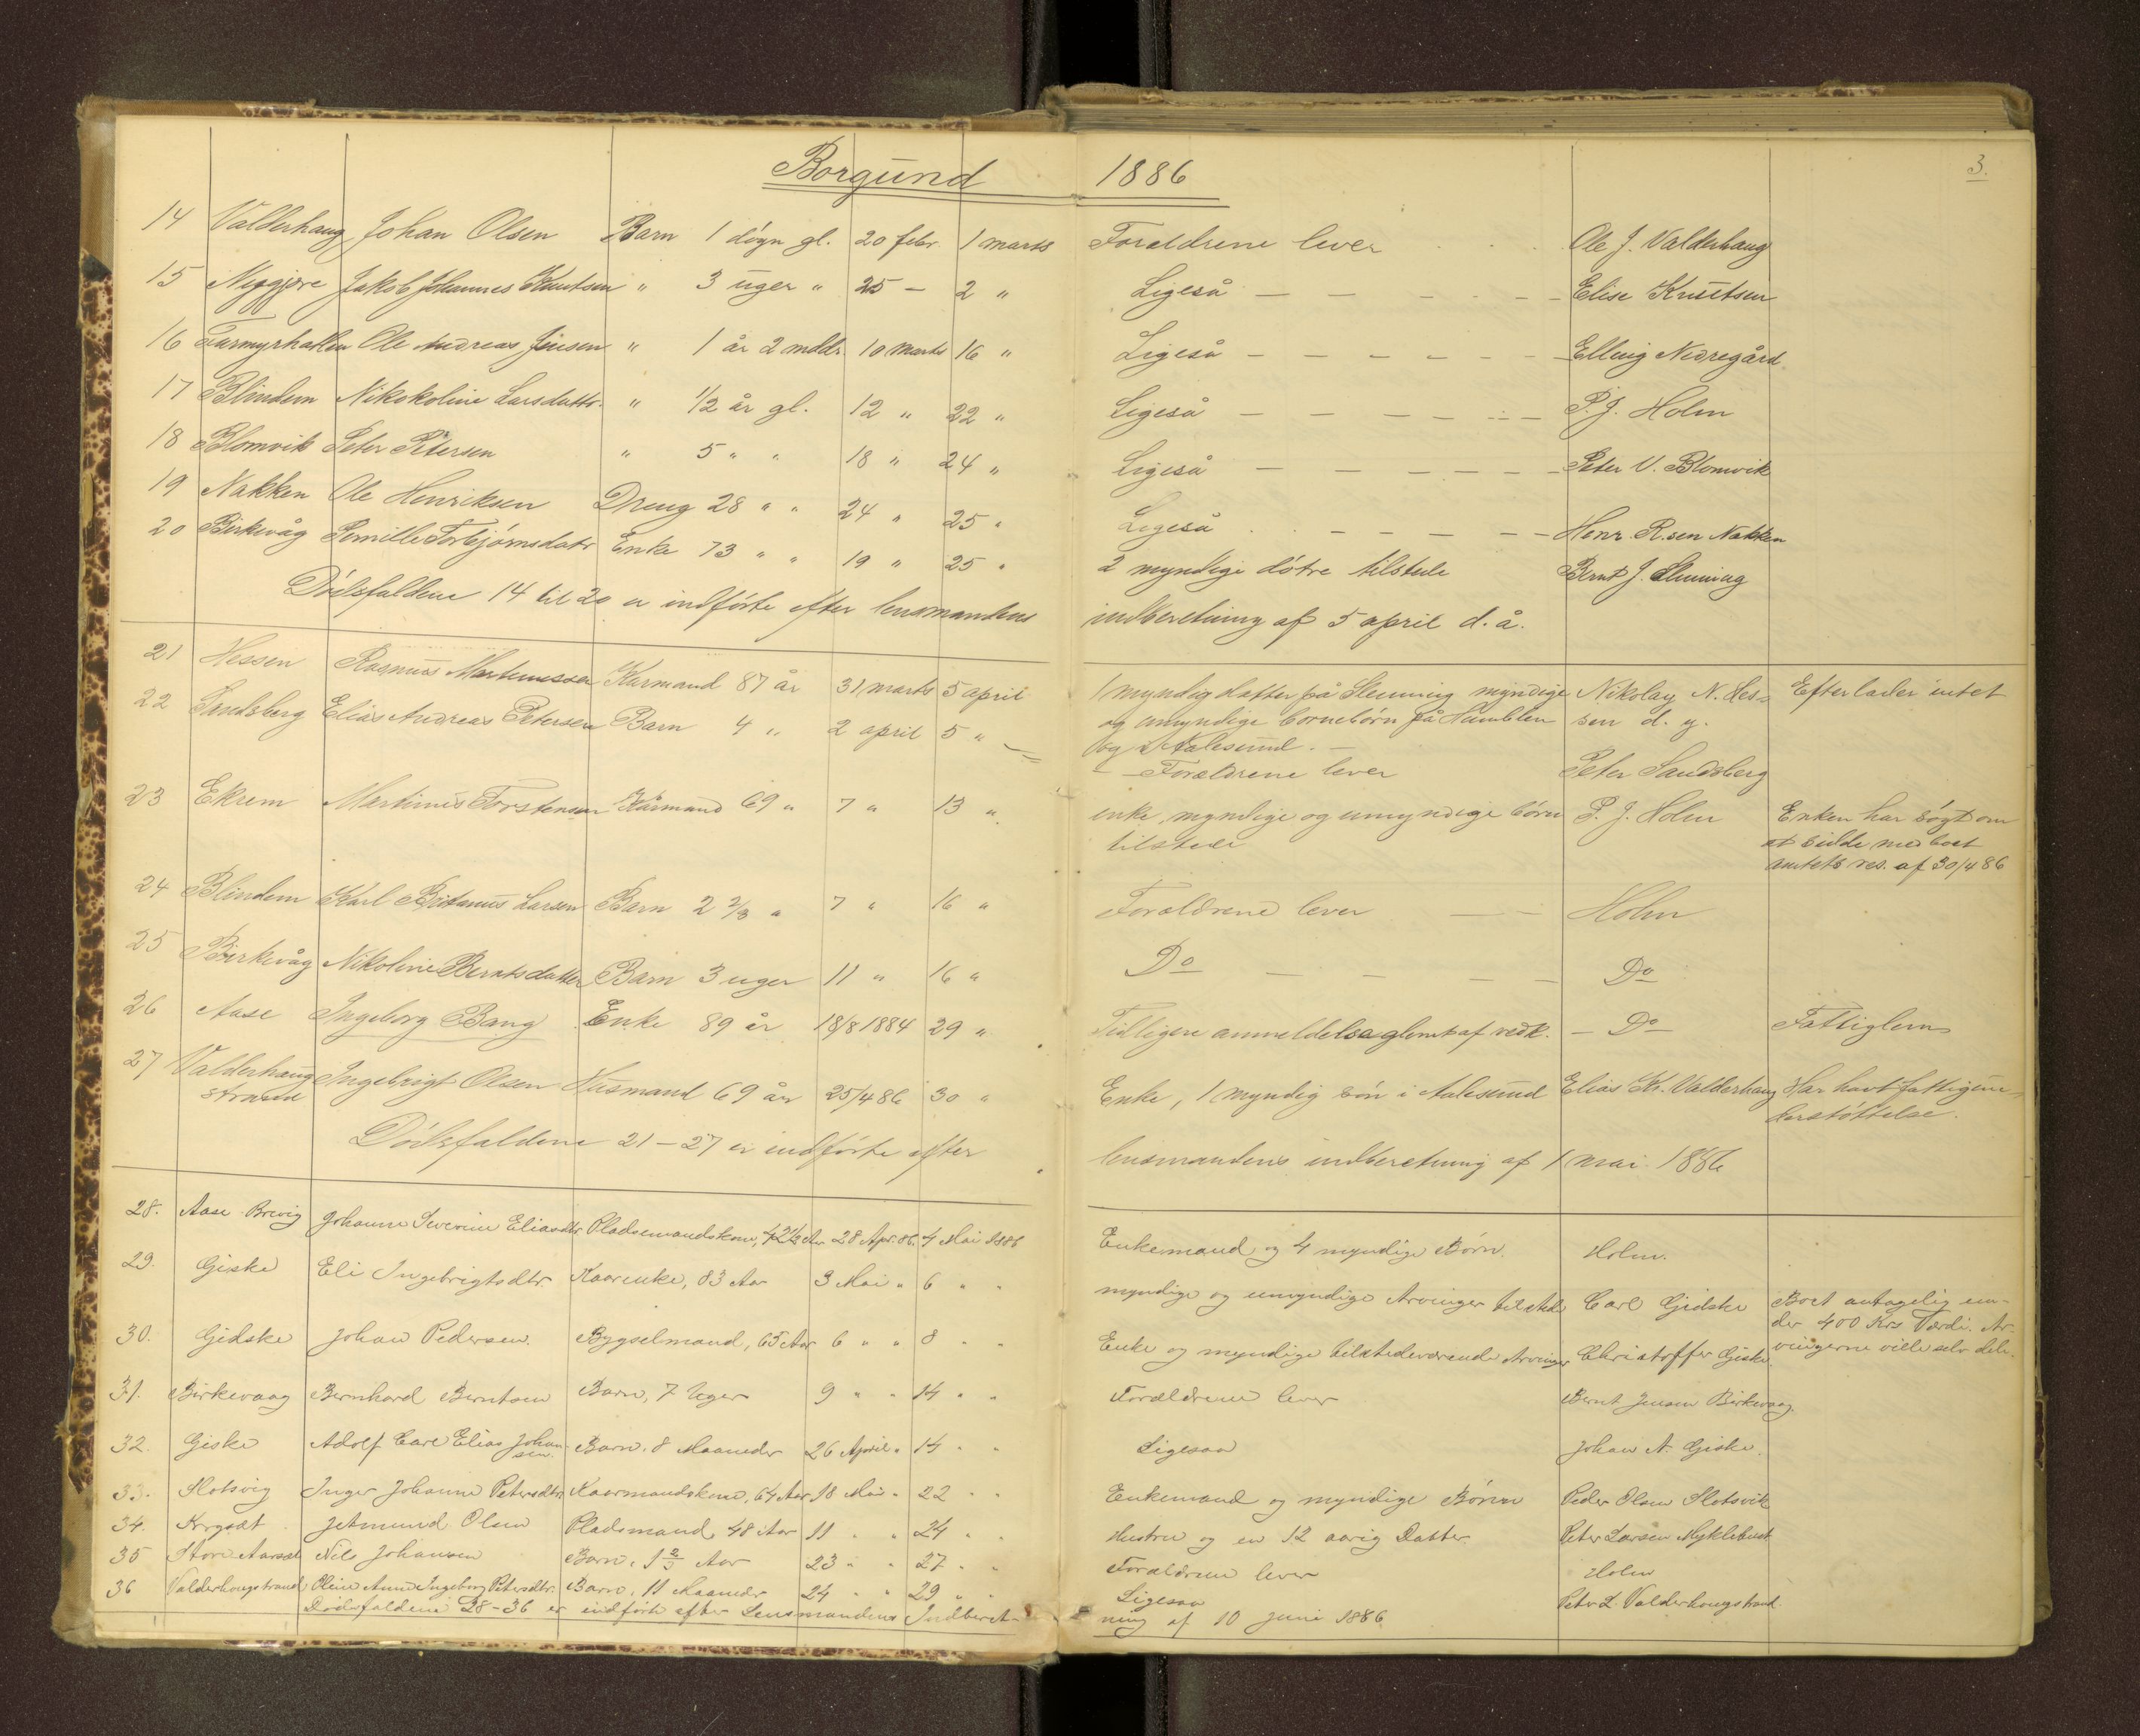 Borgund 1886
3.
14 Valderhaug Johan Olsen Barn 1 døgn gl. 20 febr. 1 marts Forældrene lever Ole J. Valderhaug
15 Jakob Johannes Knutsen " 3 uger " 25 – 2 " Ligeså — — – – – Elise Knutsen
16 Ole Andreas Jensen " 1 år 2 mddr. 10 marts 16 " Ligeså – – – – – – Elling Nedregård
17 Blindem Nikokoline Larsdattr. " 1/2 år gl. 12 " 22 " Ligeså – – – – – P. J. Holm
18 Blomvik Peter Petersen " 5 " " 18 " 24 " Ligeså – – – – – – Peter U. Blomvik
19 Nakken Ole Henriksen Dreng 28 " " 24 " 25 " Ligeså – – – – – Henr. R.sen Nakken
20 Birkevåg Pernille Torbjørnsdatr Enke 73 " " 19 " 25 " 2 myndige døtre tilstede Bernt J. Slinning
Dødsfaldene 14 til 20 er indførte efter lensmandens indberetning af 5 april d. å.
21 Hessen Rasmus Martinussen Kårmand 87 år 31 marts 5 april 1 myndig datter på Slinning myndige Nikolay N. Hes- Efterlader intet
og umyndige børnebørn på Humblen sen d. y.
og i Aalesund. –
22 Sandsberg Elias Andreas Petersen Barn 4 " 2 april 5 " – Forældrene lever Peter Sandsberg
23 Ekrem Martinus Torstensen Kårmand 69 " 7 " 13 " enke, myndige og umyndige børn P. J. Holm Enken har søgt om
tilstede at sidde med boet
amtets res. af 30/4 86
24 Blindem Karl Larsen Barn 2 2/3 " 7 " 16 " Forældrene lever — – Holm
25 Birkevåg Nikoline Berntsdatter Barn 3 uger 11 " 16 " Do – – – – Do
26 Aase Ingeborg Bang Enke 89 år 18/8 1884 29 " Tidligere anmeldelse glemt af vedk. – Do Fattiglem
27 Valderhaug Ingebrigt Olsen Husmand 69 år 25/4 86 30 " Enke, 1 myndig søn i Aalesund Elias Kr. Valderhaug Har havt fattigun-
strand derstøttelse.
Dødsfaldene 21–27 er indførte efter lensmandens indberetning af 1 mai 1886
28. Aase Brevig Johanne Severine Eliasdtr. Pladsemandskone, Aar 28 Apr. 86. 4 Mai 1886 Enkemand og 4 myndige Børn. Holm.
29. Giske Eli Ingebrigtsdtr. Kaarenke, 83 Aar 3 Mai " 6 " " myndige og umyndige Arvinger tilstede Carl Gidske Boet antagelig un-
der 400 Krs Værdi. Ar-
vingerne ville selv dele.
30. Gidske Johan Pedersen. Bygselmand, 65 Aar 6 " " 8 " " Enke og myndige tilstedeværende Arvinger Christoffer Giske
31. Birkevaag Bernhard Berntsen Barn, 7 Uger 9 " " 14 " " Forældrene lever Bernt Jensen Birkevaag.
32. Giske Adolf Carl Elias Johan- Barn, 8 Maaneder 26 April " 14 " " Ligesaa Johan A. Giske.
sen.
33. Slotsvig Inger Johanne Petersdtr. Kaarmandskone, 64 Aar 18 Mai " 22 " " Enkemand og myndige Børn Peder Olsen Slotsvik
34. Jetmund Olsen Pladsmand, 48 Aar 11 " " 24 " " Hustru og en 12 aarig Datter Peter Larsen Myklebust
35 Store Aarsæt Nils Johansen Barn, 1 2/3 Aar 23 " " 27 " " Forældrene lever Holm
36 Valderhougstrand Oline Anne Ingeborg Petersdtr. Barn, 11 Maaneder 24 " " 29 " " Ligesaa Peter L. Valderhougstrand.
Dødsfaldene 28–36 er indførte efter Lensmandens Indberet-
ning af 10 Juni 1886